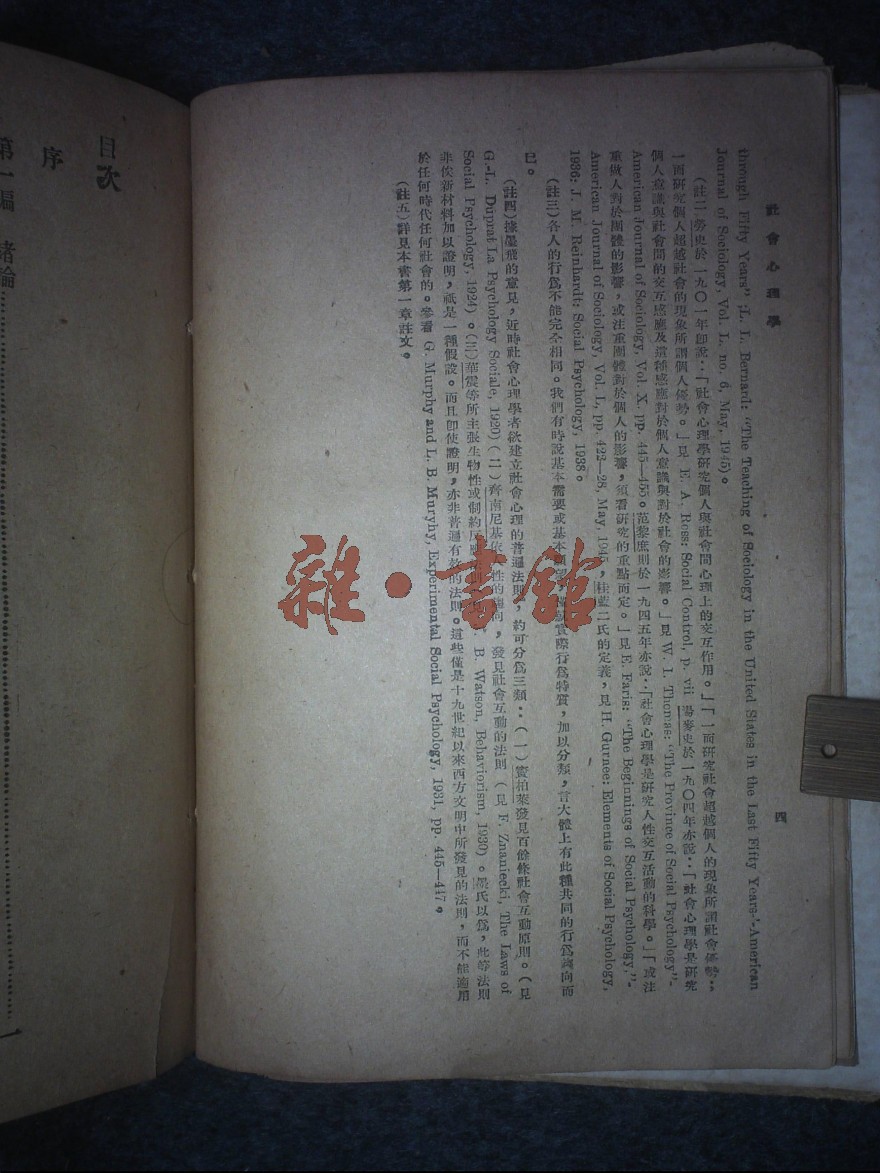 社會心理學
四
through Fifty Years";L. L. Bernard: "The Teaching of Sociology in the United States in the Last Fifty Years"-American
Journal of Sociology, Vol. L. no. 6, May, 1945)。
(註二)勞史於一九〇一年即說:「社會心理學研究個人與社會間心理上的交互作用。」「一面研究社會超越個人的現象所謂社會優勢:
一面研究個人超越社會的現象所謂個人優勢。」見 E. A. Ross: Social Control, p. vii 湯麥史於一九〇四年亦說:「社會心理學是研究
個人意識與社會間的交互感應及這種感應對於個人意識與對於社會的影響。」見 W. I. Thomas: "The Province of Social Psychology"-
American Journal of Sociology, Vol. X, pp. 445—455。范黎庶則於一九四五年亦說:「社會心理學是研究人性交互活動的科學。」「或注
重個人對於團體的影響,或注重團體對於個人的影響,須看研究的重點而定。」見 E. Faris: "The Beginnings of Social Psychology,"-
American Journal of Sociology, Vol. L, pp. 422—28, May, 1945, 桂藍二氏的定義,見 H. Gurnee: Elements of Social Psychology,
1936; J. M. Reinhardt: Social Psychology, 1938。
(註三)各人的行爲不能完全相同。我們有時說基本需要或基本 實際行爲特質,加以分類,言大體上有此種共同的行爲趨向而
已。
(註四)據墨飛的意見,近時社會心理學者欲建立社會心理的普遍法則,約可分爲三類:(一)竇柏萊發見百餘條社會互動原則。(見
G.-L. Duprat La Psychology Sociale, 1920)(二)齊南尼基依 性的趨向,發見社會互動的法則(見 F. Znaniecki, The Laws of
Social Psychology, 1924)。(三)華震等所主張生物性或制約反應 B. Watson, Behaviorism, 1930)。墨氏以爲,此等法則
非俟新材料加以證明,祇是一種假設。而且卽使證明,亦非普遍有效的法則。這些僅是十九世紀以來西方文明中所發見的法則,而不能適用
於任何時代任何社會的。參看 G. Murphy and L. B. Muryhy, Experimental Social Psychology, 1931, pp. 445—447。
(註五)詳見本書第一章註文。
目次
序
第一編 緒論
雜·書館